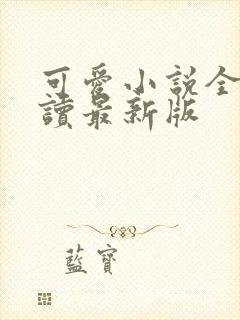 可愛小説全
讀最新版
藍寶